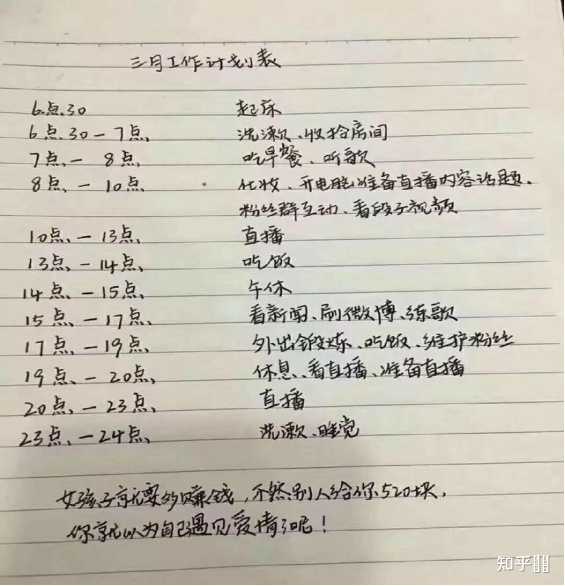 三月工作计划表
6点.30 起床
6点.30-7点、 洗漱、收拾房间
7点、- 8点、 吃早餐、听歌
8点、- 10点、 化妆、开电脑准备直播内容话题、
粉丝群互动、看段子视频
10点、- 13点、 直播
13点、- 14点、 吃饭
14点、- 15点、 午休
15点、- 17点、 看新闻、刷微博、练歌
17点、- 19点、 外出锻炼、吃饭、维护粉丝
19点、- 20点、 休息、看直播、准备直播
20点、- 23点、 直播
23点、- 24点、 洗漱、睡觉
女孩子就要多赚钱，不然别人给你520块，
你就以为自己遇见爱情了呢！
知乎